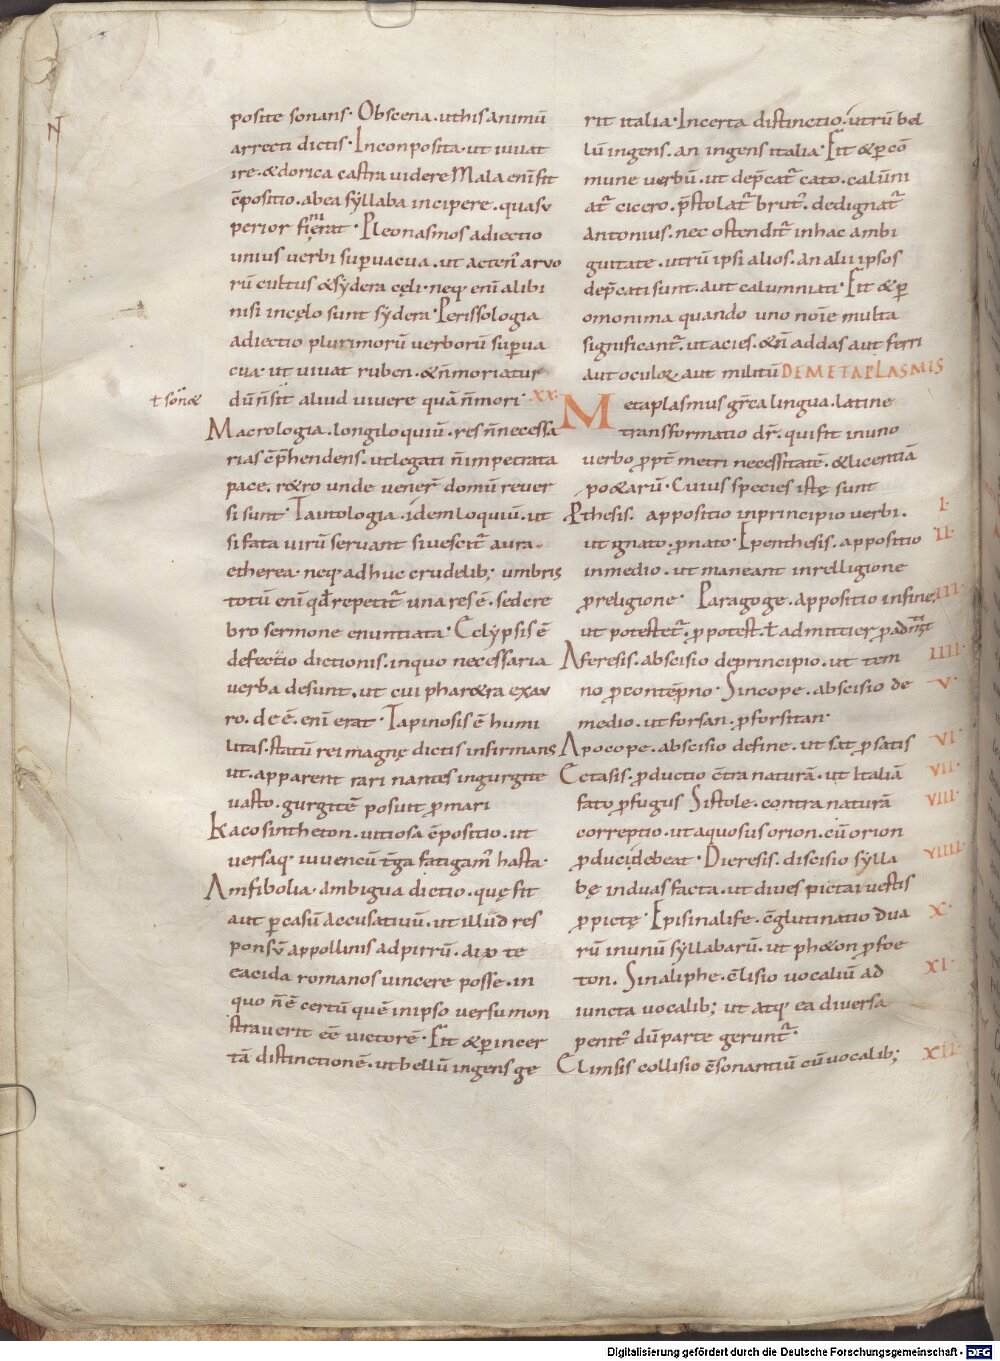 posite sonans· Obscena· ut his animū
arrecti dictis· Inconposita· ut iuvat
ire· & dorica castra uidere Mala enī fit
c̄positio· ab ea syllaba incipere· qua su
perior finierat· Pleonasmos adiectio
unius uerbi sup̄uacua· ut actenꝰ arvo
rū cultus & sydera cęli· neq; enī alibi
nisi in cęlo sunt sydera· Perissologia
adiectio plurimorū uerborū sup̄va
cua· ut uivat ruben· & n̄ moriatur
ł sonā&
dū n̄ sit aliud uiuere quā n̄ mori·
Macrologia· longiloquiū· res n̄ necessa
rias c̄p̄hendens· ut legati n̄ impetrata
pace· r&ro unde vener̄ domū rever
si sunt· Tautologia· idemloquiū· ut
si fata uirū servant si uescit̄ aura·
etherea· neq; adhuc crudelib; umbris
totū enī qđ repetit̄ una res ē· sed e re
bro sermone enuntiata· Eclypsis ē
defectio dictionis· in quo necessaria
verba desunt· ut cui phar&ra ex av
ro· de ē· enī erat· Tapinosis ē humi
litas· statū rei magnę dictis infirmans
ut· apparent rari nantes in gurgite
uasto· gurgitē posuit p̄ mari
Kacosintheton· uitiosa c̄positio· ut
versaq; iuvencū t̄ga fatigam̄ hasta·
Amfibolia· ambigua dictio· quę fit
aut p̄ casū accusativū· ut illud res
ponsū appollinis ad pirrū· aio te
eacida romanos uincere posse· in
quo n̄ ē certū quē in ipso versu mon
straverit eē victorē· Fit & p̄ incer
tā distinctionē· ut bellū ingens ge
rit italia· Incerta distinctio· utrū bel
lū ingens· an ingens italia· Fit & p̄ cō
mune verbū· ut dep̄cat̄ cato· calūni
at̄ cicero· p̄stolat̄ brutꝰ· dedignat̄
antonius· nec ostendit̄ in hac ambi
guitate· utrū ipsi alios· an alii ipsos
dep̄cati sunt· aut calumniati· Fit & p̄
omonima quando uno noīe multa
significant̄· ut acies· & n̄ addas aut ferri
aut oculoꝝ aut militū DE METAPLASMIS
XX·
Metaplasmus gr̄ca lingua· latine
transformatio dr̄· qui fit in uno
verbo p̄pt̄ metri necessitatē· & licentiā
po&arū· Cuius species istę sunt
P̄thesis· appositio in principio verbi· I·
ut gnato· p̄ nato· Epenthesis· appositio II·
in medio· ut maneant in relligione
p̄ religione· Paragoge· appositio in fine III·
ut potestet̄· p̄ potest· & admittier p̄ admitti
Aferesis· abscisio de principio· ut tem IIII·
no p̄ contēp̄no· Sincope· abscisio de V·
medio· ut forsan· p̄ forsitan·
Apocope· abscisio de fine· ut sat p̄ satis VI·
Ectasis· p̄ductio c̄tra naturā· ut Italiā VII·
fato p̄fugus Sistole· contra naturā VIII·
correptio· ut aquosus orion· cū orion
p̄duci debeat· Dieresis· discisio sylla VIIII·
bę in duas facta· ut dives pictai vestis
p̄ pictę· Episinalife· c̄glutinatio dua X·
rū in unū syllabarū· ut ph&on p̄ foe
ton· Sinaliphe· c̄lisio vocaliū ad XI·
iuncta vocalib; ut atq; ea diversa
penitꝰ dū parte gerunt̄·
Elimsis collisio c̄sonantiū cū vocalib; XII·
Digitalisierung gefördert durch die Deutsche Forschungsgemeinschaft - DFG